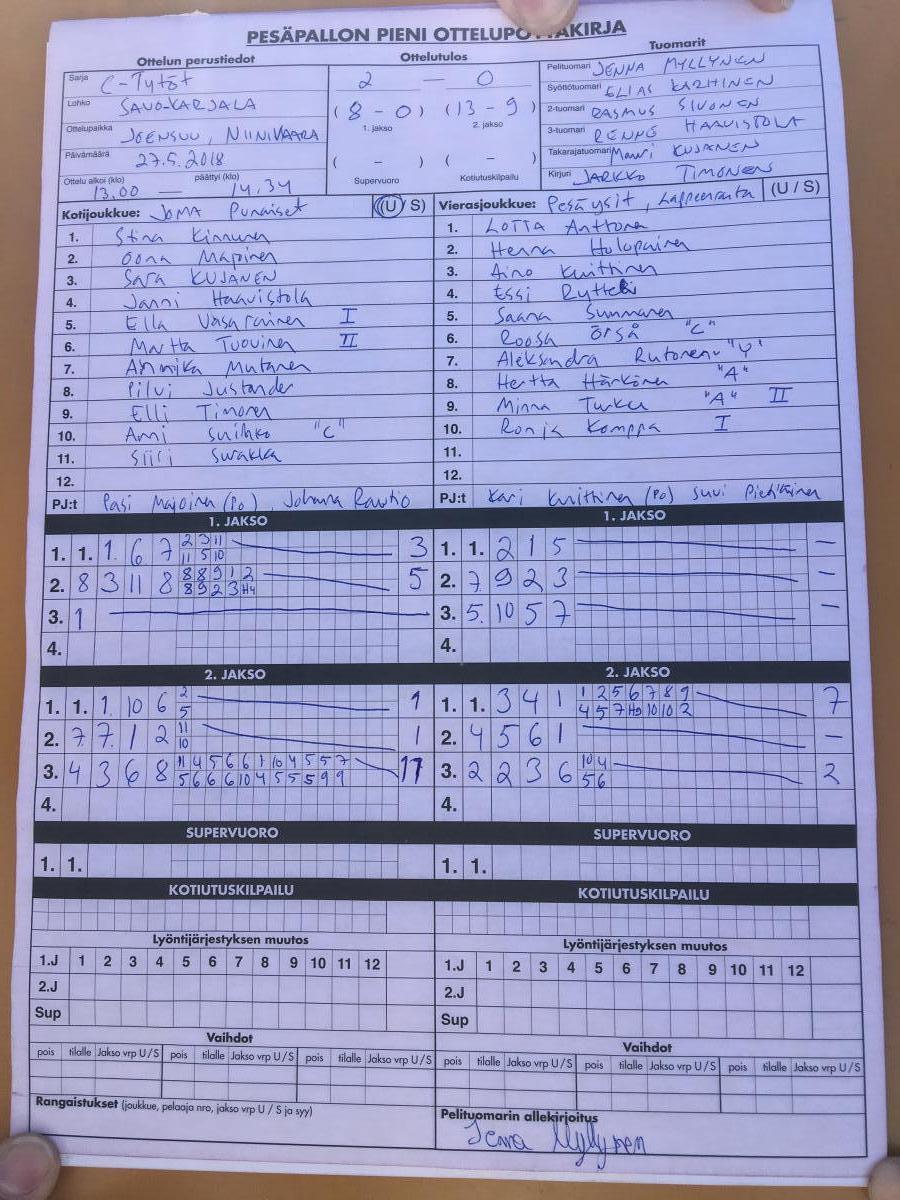 PESÄPALLON PIENI OTTELUPÖYTÄKIRJA
Ottelun perustiedot
Ottelutulos
Tuomarit
Sarja C-Tytöt
Lohko SAVO-KARJALA
Ottelupaikka JOENSUU, NIINIVAARA
Päivämäärä 27.5.2018
Ottelu alkoi (klo) 13.00 — päättyi (klo) 14.34
2 — 0
(8 - 0) (13 - 9)
1. jakso 2. jakso
( - ) ( - )
Supervuoro Kotiutuskilpailu
Pelituomari JENNA MYLLYNEN
Syöttötuomari ELIAS KARHINEN
2-tuomari RASMUS SIVONEN
3-tuomari RENNE HAAVISTOLA
Takarajatuomari Mauri KUJANEN
Kirjuri JARKKO TIMONEN
Kotijoukkue: JOMA Punaiset (U / S)
1. Stina Kinnunen
2. Oona Mapinen
3. Sara KUJANEN
4. Janni Haavistola
5. Ella Vasarainen I
6. Martta Tuovinen II
7. Annika Mutanen
8. Pilvi Justander
9. Elli Timonen
10. Anni Suihko "C"
11. Siiri Swakka
12.
PJ:t Pasi Majoinen (PO), Johanna Rautio
Vierasjoukkue: Pesä Ysit, Lappeenranta (U / S)
1. LOTTA Anttonen
2. Henna Holopainen
3. Aino Knittinen
4. Essi Rytteli
5. Saana Summanen
6. Roosa Örså "C"
7. Aleksandra Rutonen "V"
8. Hertta Härkönen "A"
9. Minna Turku "A" II
10. Ronja Komppa I
11.
12.
PJ:t Kari Knittinen (PO) Suvi Pietikäinen
1. JAKSO
1. 1. 1 6 7 2 3 11 3
11 5 10
2. 8 3 11 8 8 8 9 1 2 5
8 9 2 3 H4
3. 1
4.
1. JAKSO
1. 1. 2 1 5 —
2. 7 9 2 3 —
3. 5 10 5 7 —
4.
2. JAKSO
1. 1. 1 10 6 2 1
5
2. 7 7 1 2 11 1
10
3. 4 3 6 8 11 4 5 6 6 1 10 4 5 5 7 11
5 6 6 6 10 4 5 5 5 9 9
4.
2. JAKSO
1. 1. 3 4 1 1 2 5 6 7 8 9 7
4 5 7 H9 10 10 2
2. 4 5 6 1 —
3. 2 2 3 6 10 4 2
5 6
4.
SUPERVUORO
1. 1.
SUPERVUORO
1. 1.
KOTIUTUSKILPAILU
KOTIUTUSKILPAILU
Lyöntijärjestyksen muutos
1.J 1 2 3 4 5 6 7 8 9 10 11 12
2.J
Sup
Lyöntijärjestyksen muutos
1.J 1 2 3 4 5 6 7 8 9 10 11 12
2.J
Sup
Vaihdot
pois tilalle Jakso vrp U / S pois tilalle Jakso vrp U / S pois tilalle Jakso vrp U / S
Vaihdot
pois tilalle Jakso vrp U / S pois tilalle Jakso vrp U / S pois tilalle Jakso vrp U / S
Rangaistukset (joukkue, pelaaja nro, jakso vrp U / S ja syy)
Pelituomarin allekirjoitus
Jenna Myllynen